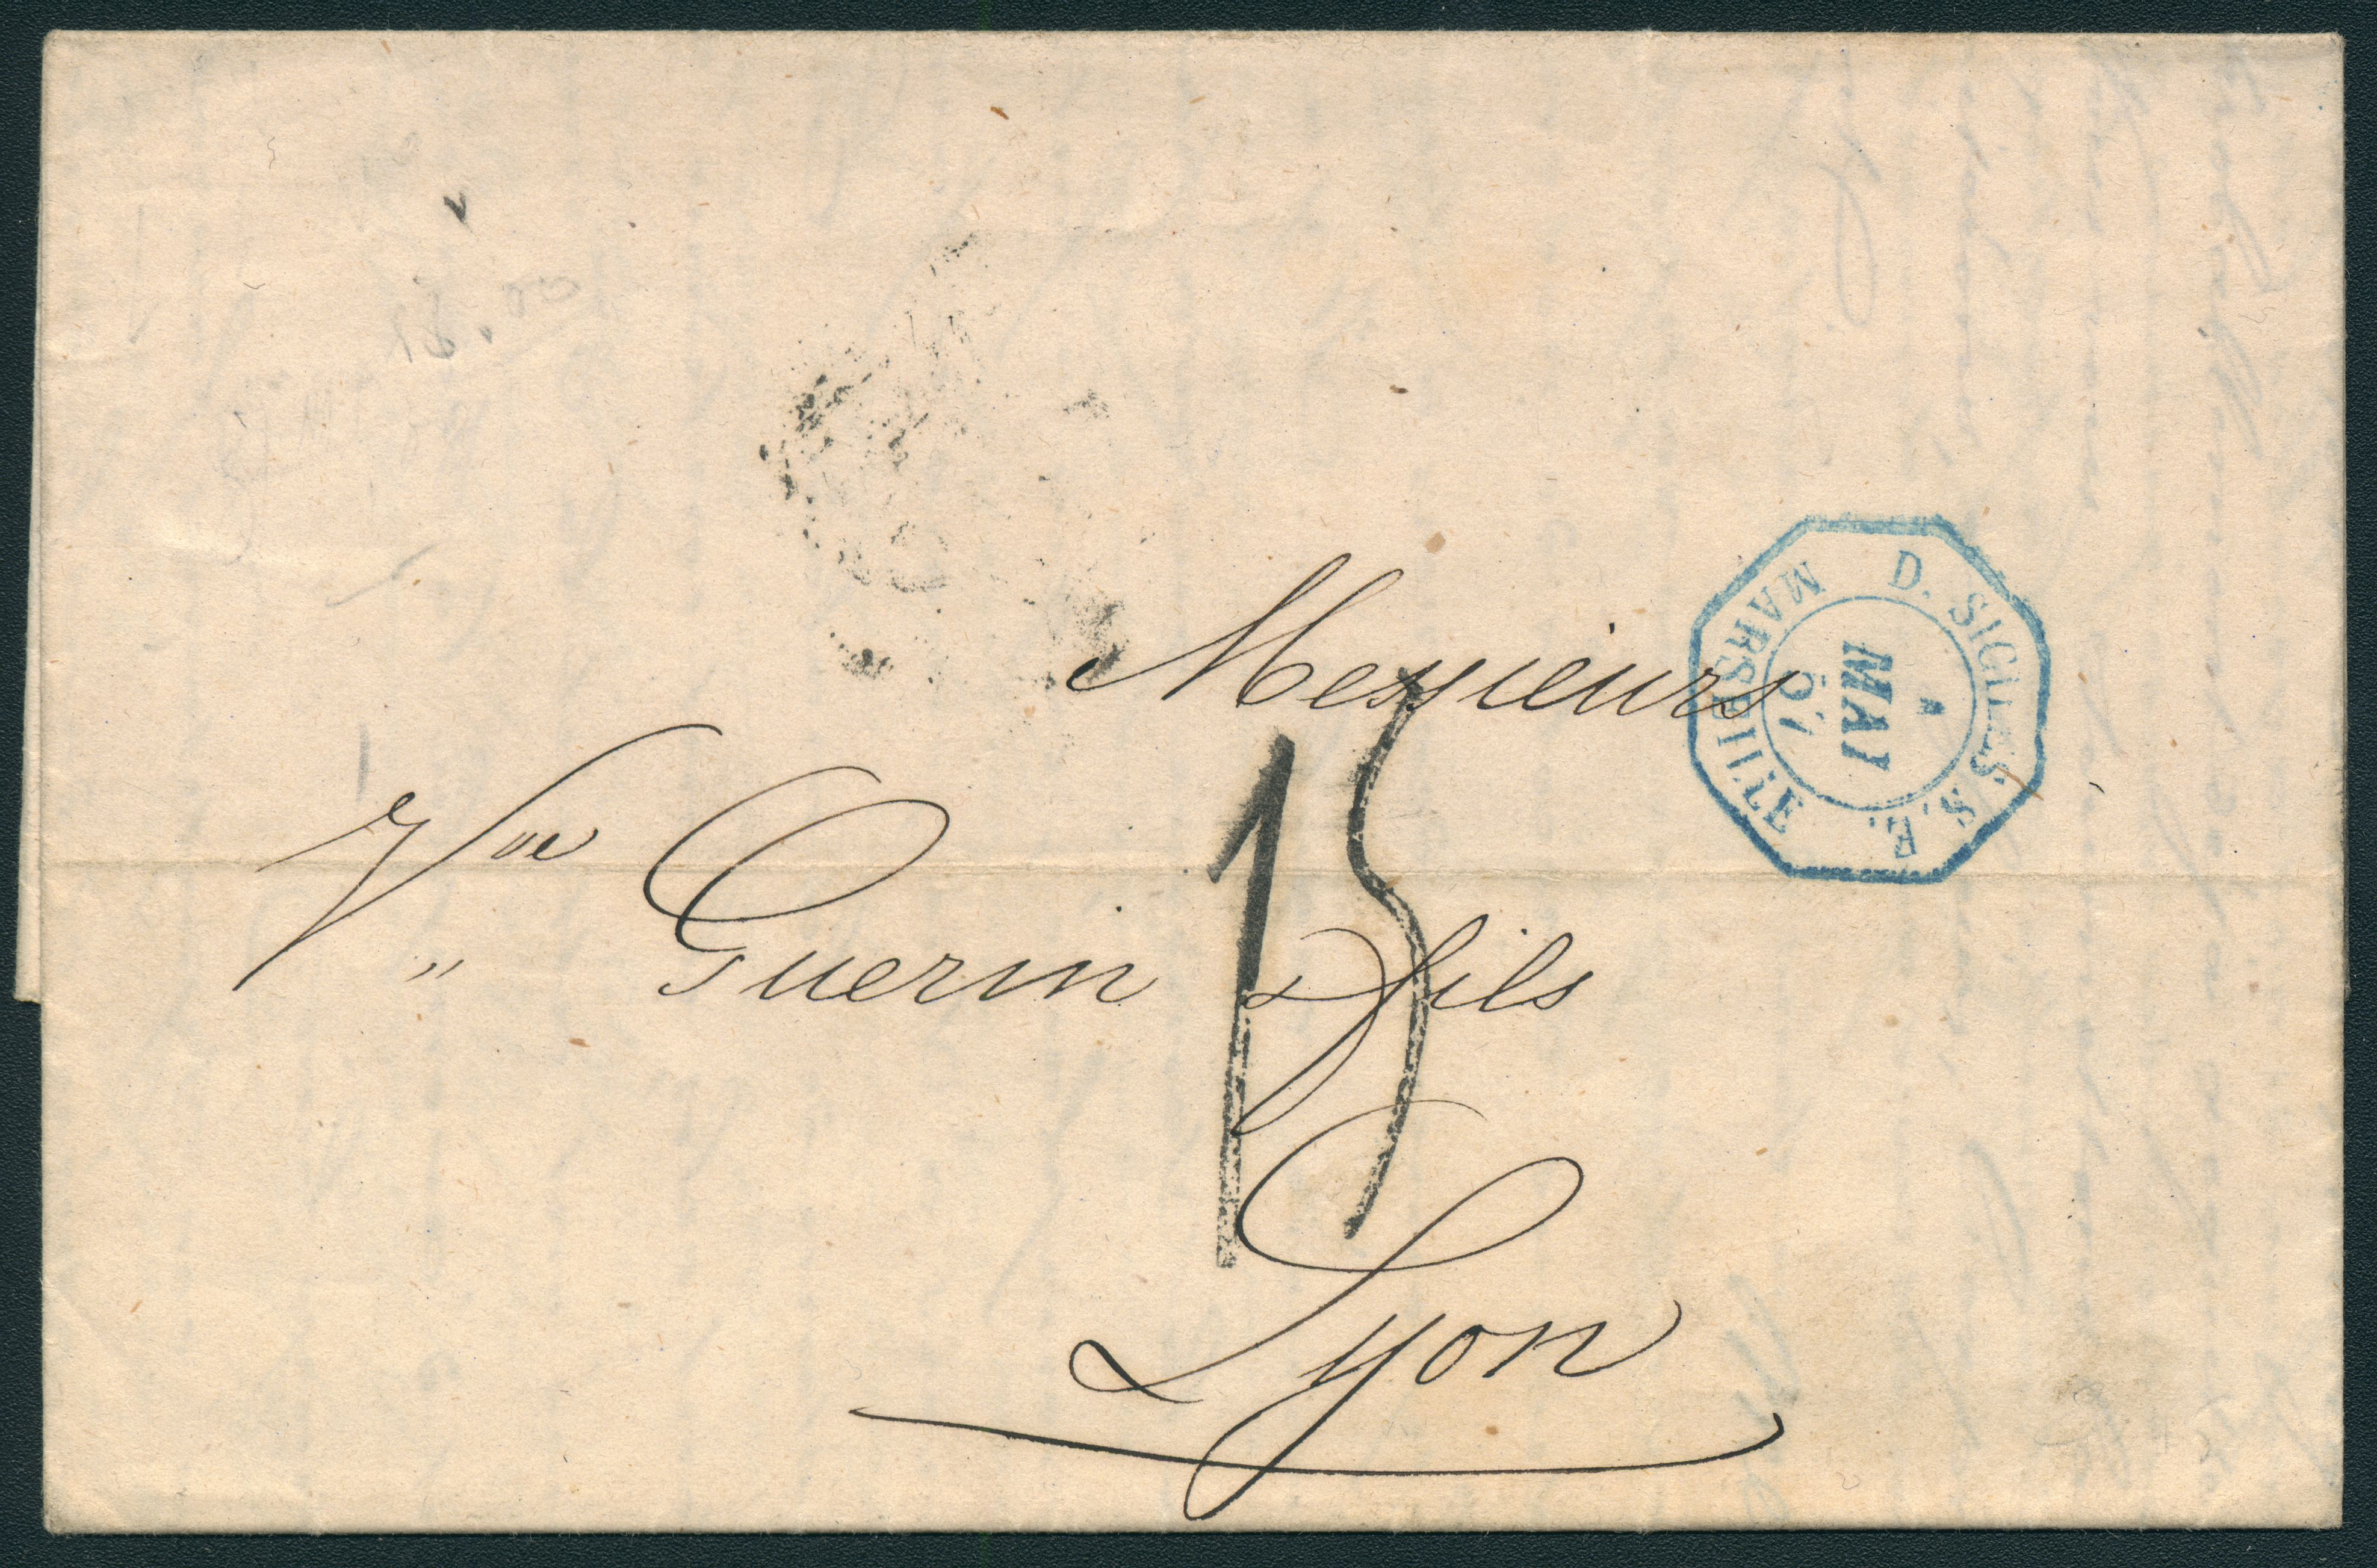 Messieurs
Vve Guerin & fils
15
Lyon
D. SICILES. S. E.
MAI
57
MARSEILLE